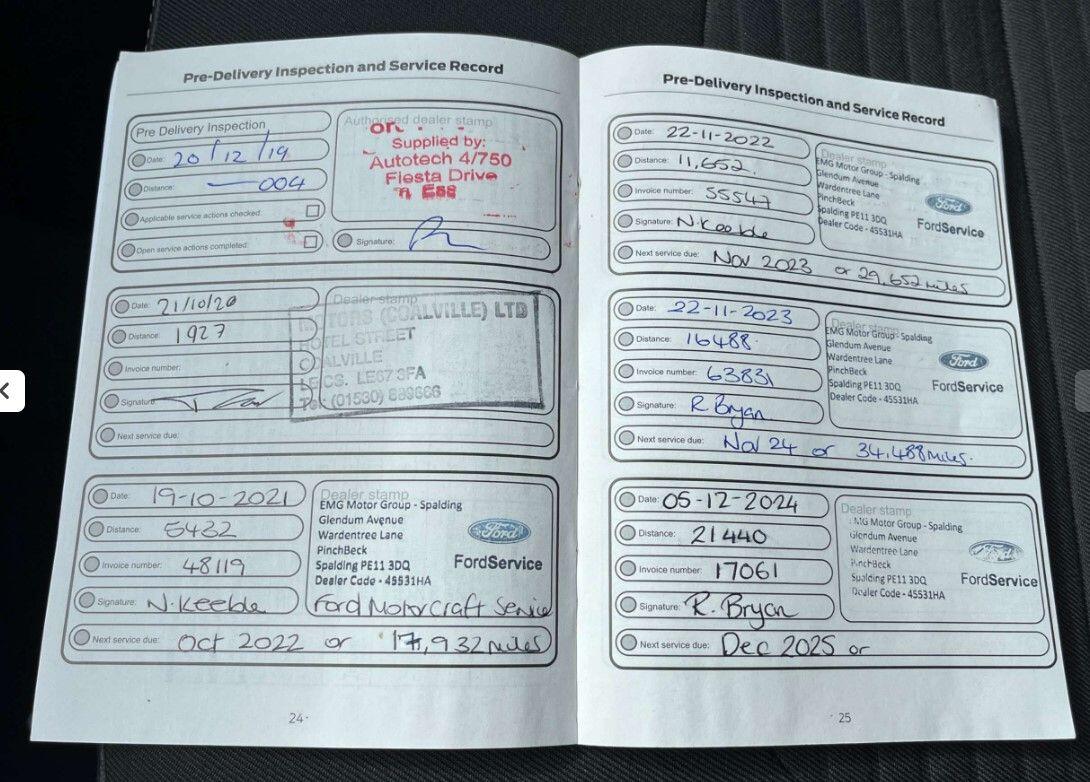 Pre-Delivery Inspection and Service Record
Pre Delivery Inspection
Date: 20/12/19
Distance: — 004
Applicable service actions checked:
Open service actions completed:
Authorised dealer stamp
on
Supplied by:
Autotech 4/750
Fiesta Drive
Signature:
Date: 21/10/20
Distance: 1927
Invoice number:
Signature:
Next service due:
Dealer stamp
(COALVILLE) LTD
HOTEL STREET
COALVILLE
LEICS. LE67 3FA
Tel: (01530)
Date: 19-10-2021
Distance: 5432
Invoice number: 48119
Signature: N. Keeble
Next service due: Oct 2022 or 17,932 miles
Dealer stamp
EMG Motor Group - Spalding
Glendum Avenue
Wardentree Lane
PinchBeck
Spalding PE11 3DQ
Dealer Code - 45531HA
Ford
FordService
Ford Motorcraft Service
24
Pre-Delivery Inspection and Service Record
Date: 22-11-2022
Distance: 11,652
Invoice number: 55547
Signature: N. Keeble
Next service due: Nov 2023 or 29,652 miles
Dealer stamp
EMG Motor Group - Spalding
Glendum Avenue
Wardentree Lane
PinchBeck
Spalding PE11 3DQ
Dealer Code - 45531HA
Ford
FordService
Date: 22-11-2023
Distance: 16488
Invoice number: 63831
Signature: R Bryan
Next service due: Nov 24 or 34,488 miles.
Dealer stamp
EMG Motor Group - Spalding
Glendum Avenue
Wardentree Lane
PinchBeck
Spalding PE11 3DQ
Dealer Code - 45531HA
Ford
FordService
Date: 05-12-2024
Distance: 21440
Invoice number: 17061
Signature: R. Bryan
Next service due: Dec 2025 or
Dealer stamp
MG Motor Group - Spalding
Glendum Avenue
Wardentree Lane
PinchBeck
Spalding PE11 3DQ
Dealer Code - 45531HA
Ford
FordService
25